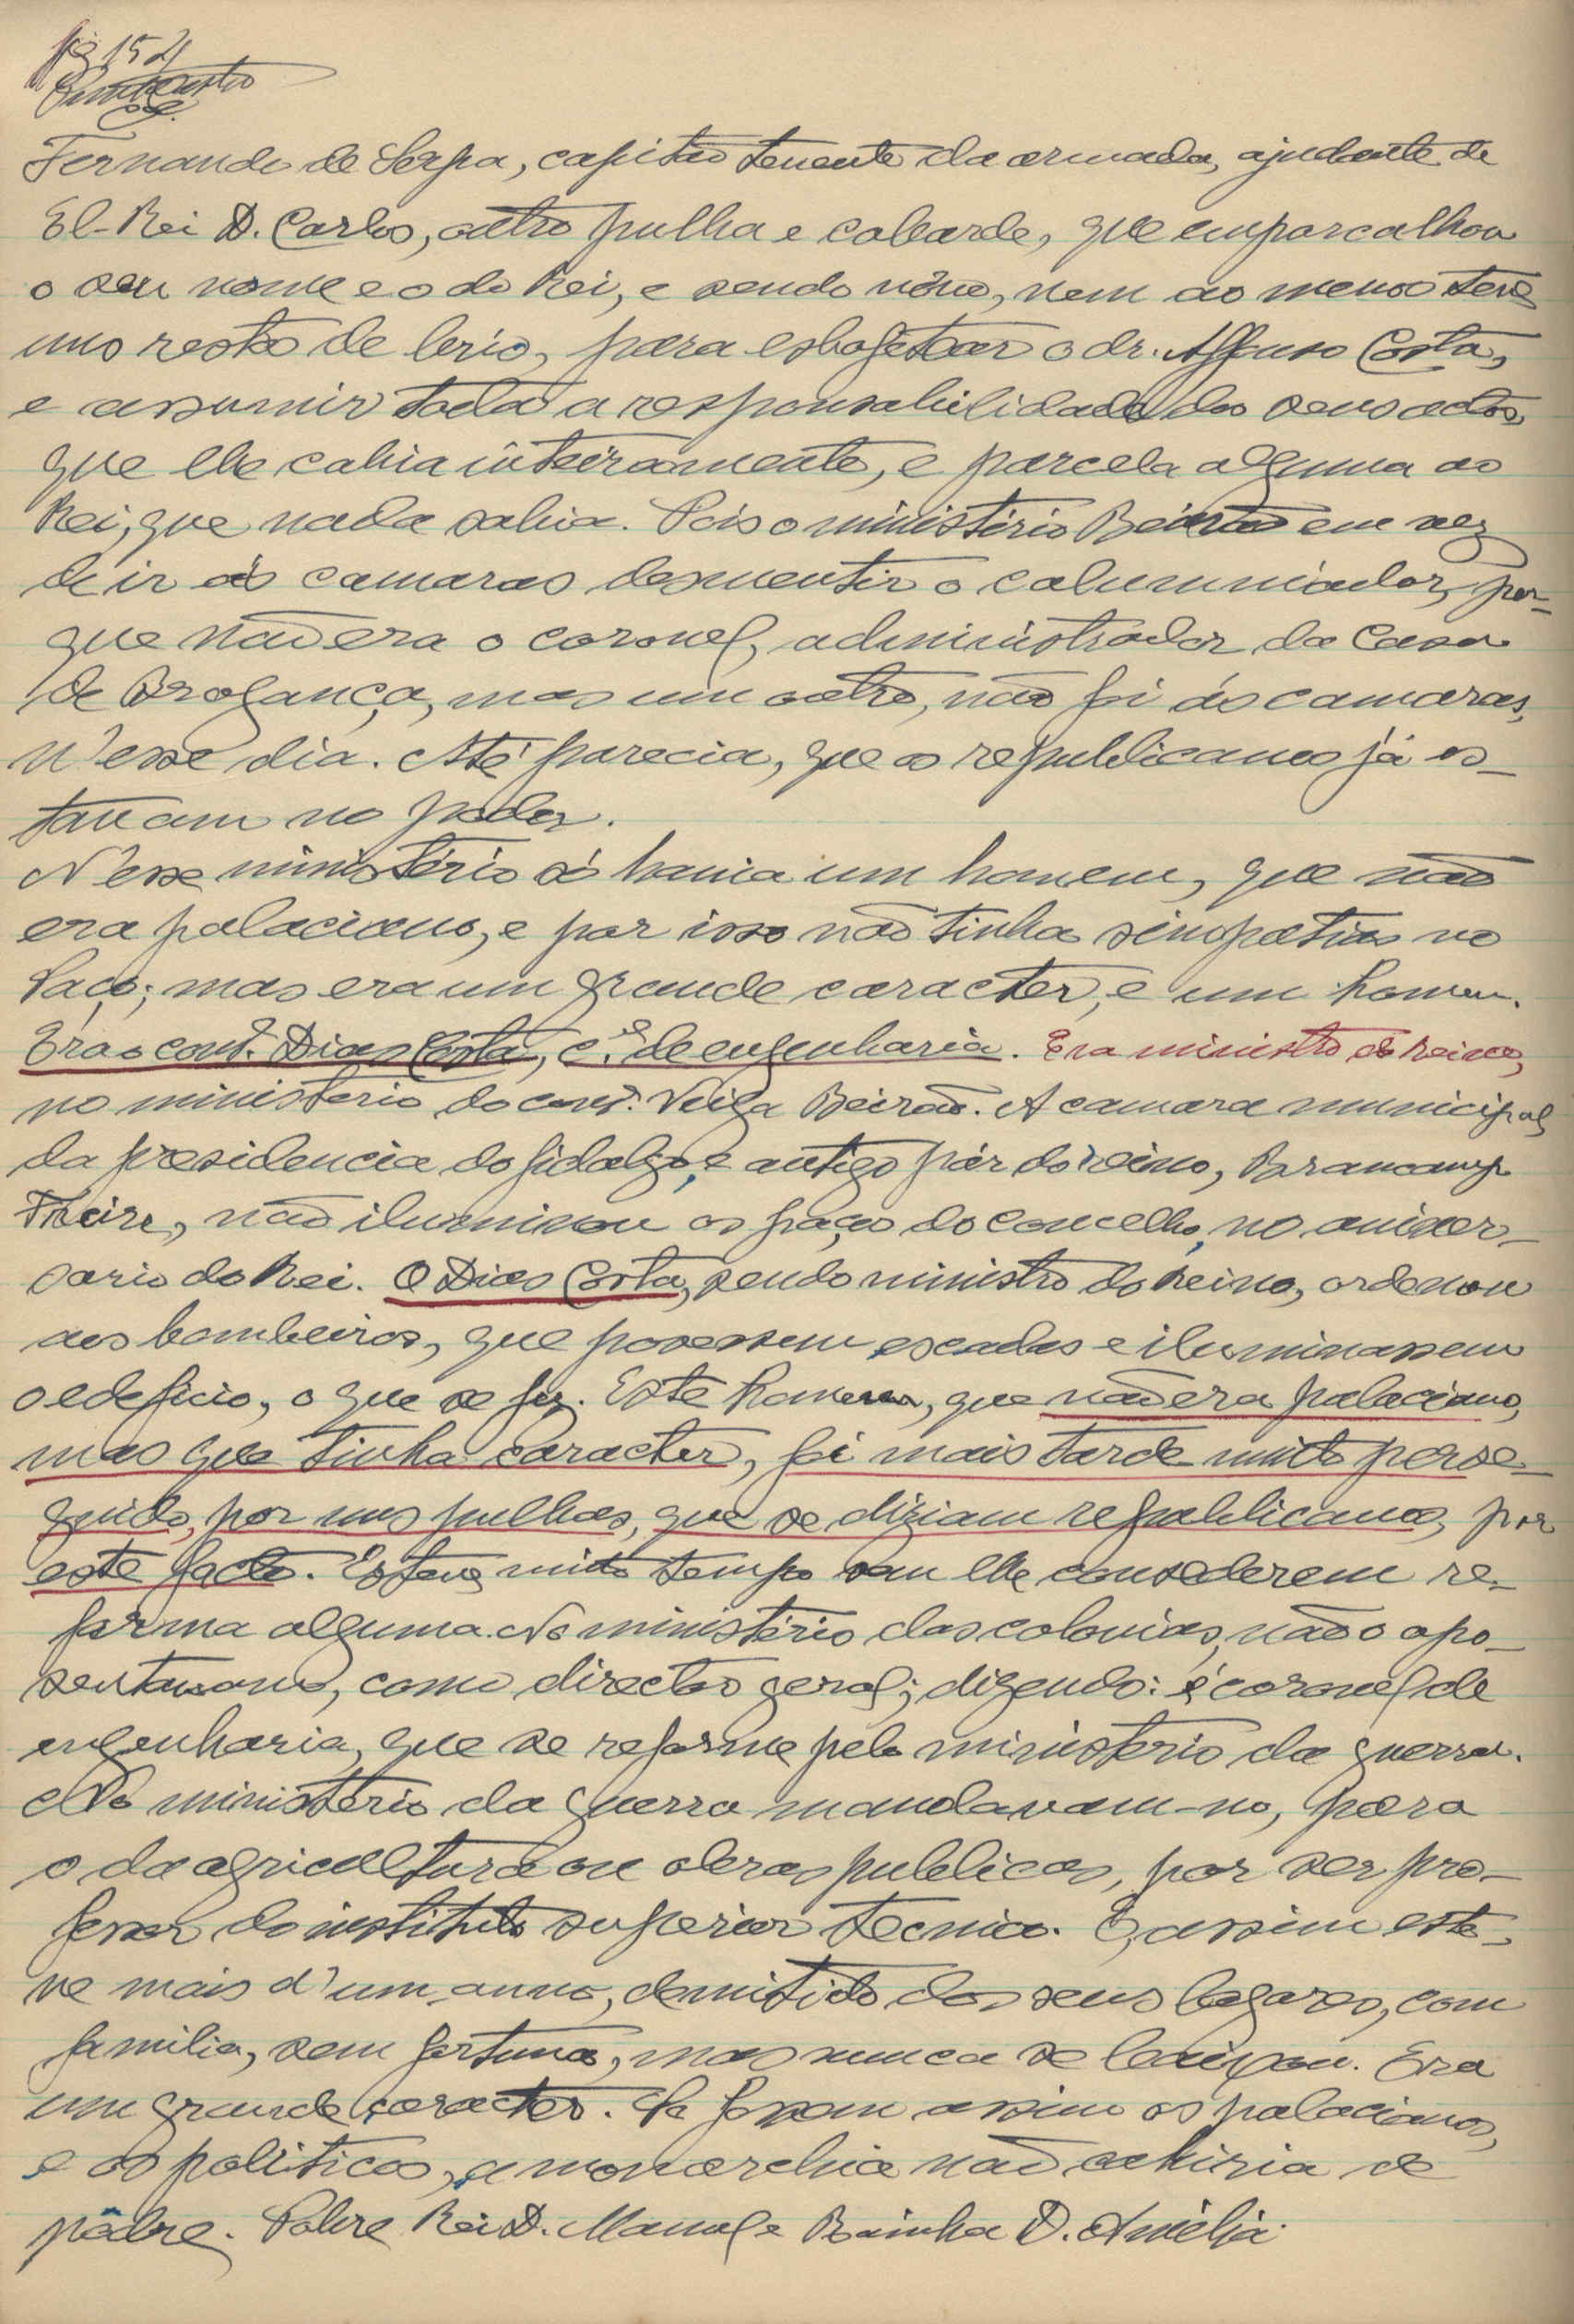 Fernando de Serpa, capitão tenente da armada, ajudante de
El-Rei D. Carlos, outro pulha e cobarde, que emporcalhou
o seu nome e o do Rei, e sendo novo, nem ao menos teve
uns restos de brio, para esbofetear o dr. Affonso Costa,
e assumir toda a responsabilidade dos seus actos,
que lhe cabia inteiramente, e parcela alguma ao
Rei, que nada sabia. Pois o ministério Beirão em vez
de ir ás camaras desmentir o calumniador, por-
que não era o coronel, administrador da Casa
de Bragança, mas um outro, não foi ás camaras,
N'esse dia. Até parecia, que os republicanos já es-
tavam no poder.
N'esse ministério só havia um homem, que não
era palaciano, e por isso não tinha simpatias no
Paço; mas era um grande caracter, e um homem.
Era o cons.º Dias Costa, c.el de engenharia. Era ministro do Reino,
no ministerio do cons.º Veiga Beirão. A camara municipal
da presidencia do fidalgo, e antigo pár do reino, Brancamp
Freire, não iluminou os paços do concelho, no aniver-
sario do Rei. O Dias Costa, sendo ministro do Reino, ordenou
aos bombeiros, que posessem escadas e iluminassem
o edeficio, o que se fez. Este homem, que não era palaciano,
mas que tinha caracter, foi mais tarde muito perse-
guido, por uns pulhas, que se diziam republicanos, por
este facto. Esteve muito tempo sem lhe consederem re-
forma alguma. No ministério das colonias, não o apo-
sentavam, como director geral; dizendo: é coronel de
engenharia, que se reforme pelo ministerio da guerra.
No ministério da guerra mandavam-no, para
o da agricultura ou obras publicas, por ser pro-
fessor do instituto superior tecnico. E, assim este-
ve mais d'um anno, demitido dos seus logares, com
familia, sem fortuna, mas nunca se baixou. Era
um grande caracter. Se fossem assim os palacianos,
e os politicos, a monarchia não cahiria de
pôdre. Pobre Rei D. Manuel e Rainha D. Amélia.